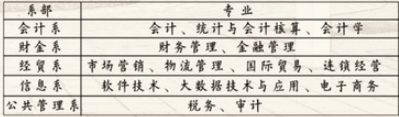 系部 专业
会计系 会计、统计与会计核算、会计学
财金系 财务管理、金融管理
经贸系 市场营销、物流管理、国际贸易、连锁经营
信息系 软件技术、大数据技术与应用、电子商务
公共管理系 税务、审计